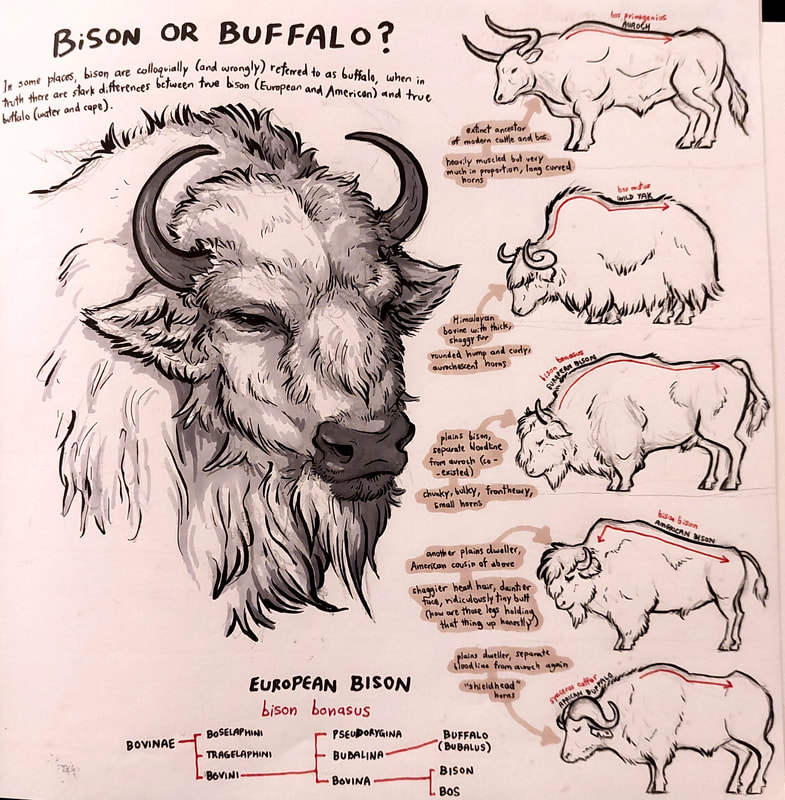 BiSON OR BUFFALO?
In some places, bison are colloquially (and wrongly) referred to as buffalo, when in
truth there are stark differences between true bison (European and American) and true
buffalo (water and cape).
bos primigenius
AUROCH
extinct ancestor
of modern cattle and bos.
heavily muscled but very
much in proportion, long curved
horns
bos mutus
WILD YAK
Himalayan
bovine with thick,
shaggy fur
rounded hump and curly,
aurochescent horns
bison bonasus
EUROPEAN BISON
plains bison,
separate bloodline
from auroch (co-
existed)
chunky, bulky, frontheavy,
small horns
bison bison
AMERICAN BISON
another plains dweller,
American cousin of above
shaggier head hair, daintier
face, ridiculously tiny butt
(how are those legs holding
that thing up honestly)
plains dweller, separate
bloodline from auroch again
"shieldhead"
horns
syncerus caffer
AFRICAN BUFFALO
EUROPEAN BISON
bison bonasus
BOVINAE
BOSELAPHINI
TRAGELAPHINI
BOVINI
PSEUDORYGINA
BUBALINA
BOVINA
BUFFALO
(BUBALUS)
BISON
BOS